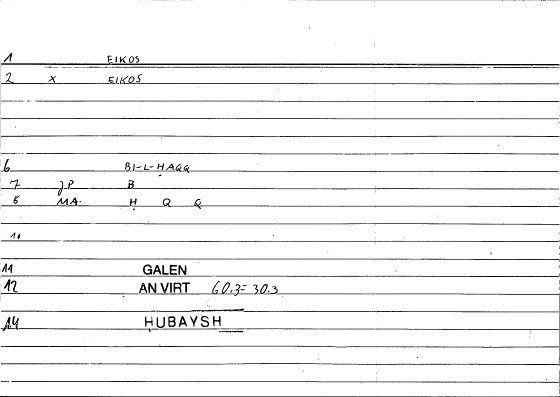 1 EIKOS
2 x EIKOS
6 BI-L-ḤAQQ
7 J.P B
8 MA. Ḥ Q Q
11 GALEN
12 AN VIRT 60.3= 30.3
14 ḤUBAYSH